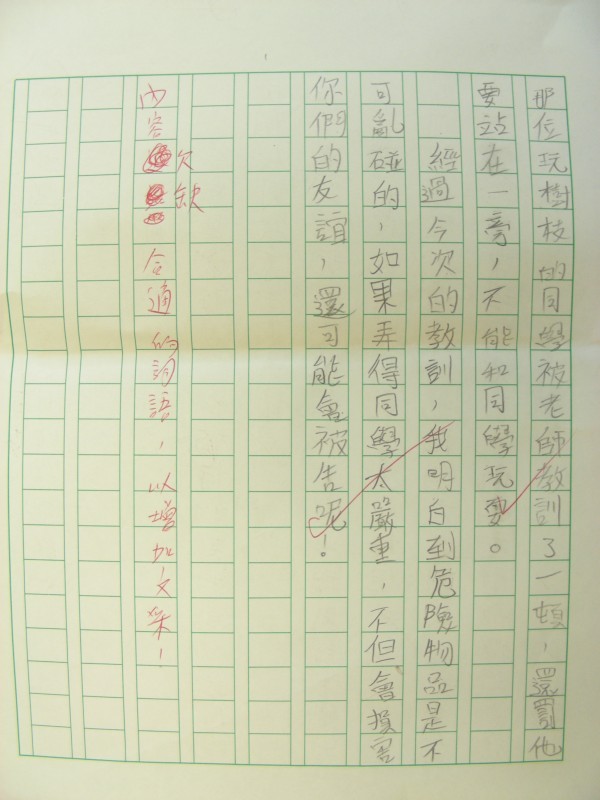 那位玩樹枝的同學被老師教訓了一頓，還罰他
要站在一旁，不能和同學玩耍。
經過今次的教訓，我明白到危險物品是不
可亂碰的，如果弄得同學太嚴重，不但會損害
你們的友誼，還可能會被告呢！
內容欠缺合適的詞語，以增加文采！